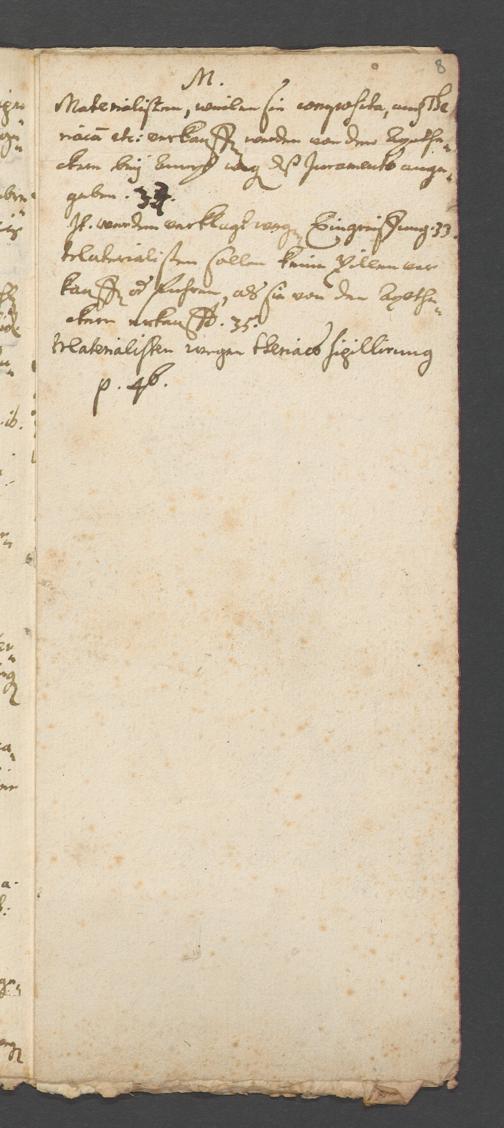 8
M.
Materialisten, weilen sie composita, auch The
riacã etc: verkauffen werden von den Apothe„
ckern beÿ weg des Juraments ange„
geben. 33.
It. werden verklagt wegen Eingreiffung. 33.
Materialisten sollen keine Pillen ver
kauffen od führen, als sie von den Apothe„
ckern erkaufft. 35.
Materialisten wegen theriacs sigillirung
p. 46.